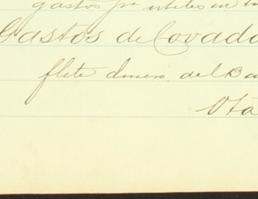 gastos pr utiles en
Gastos de Covado
flete dinero del B
Ota